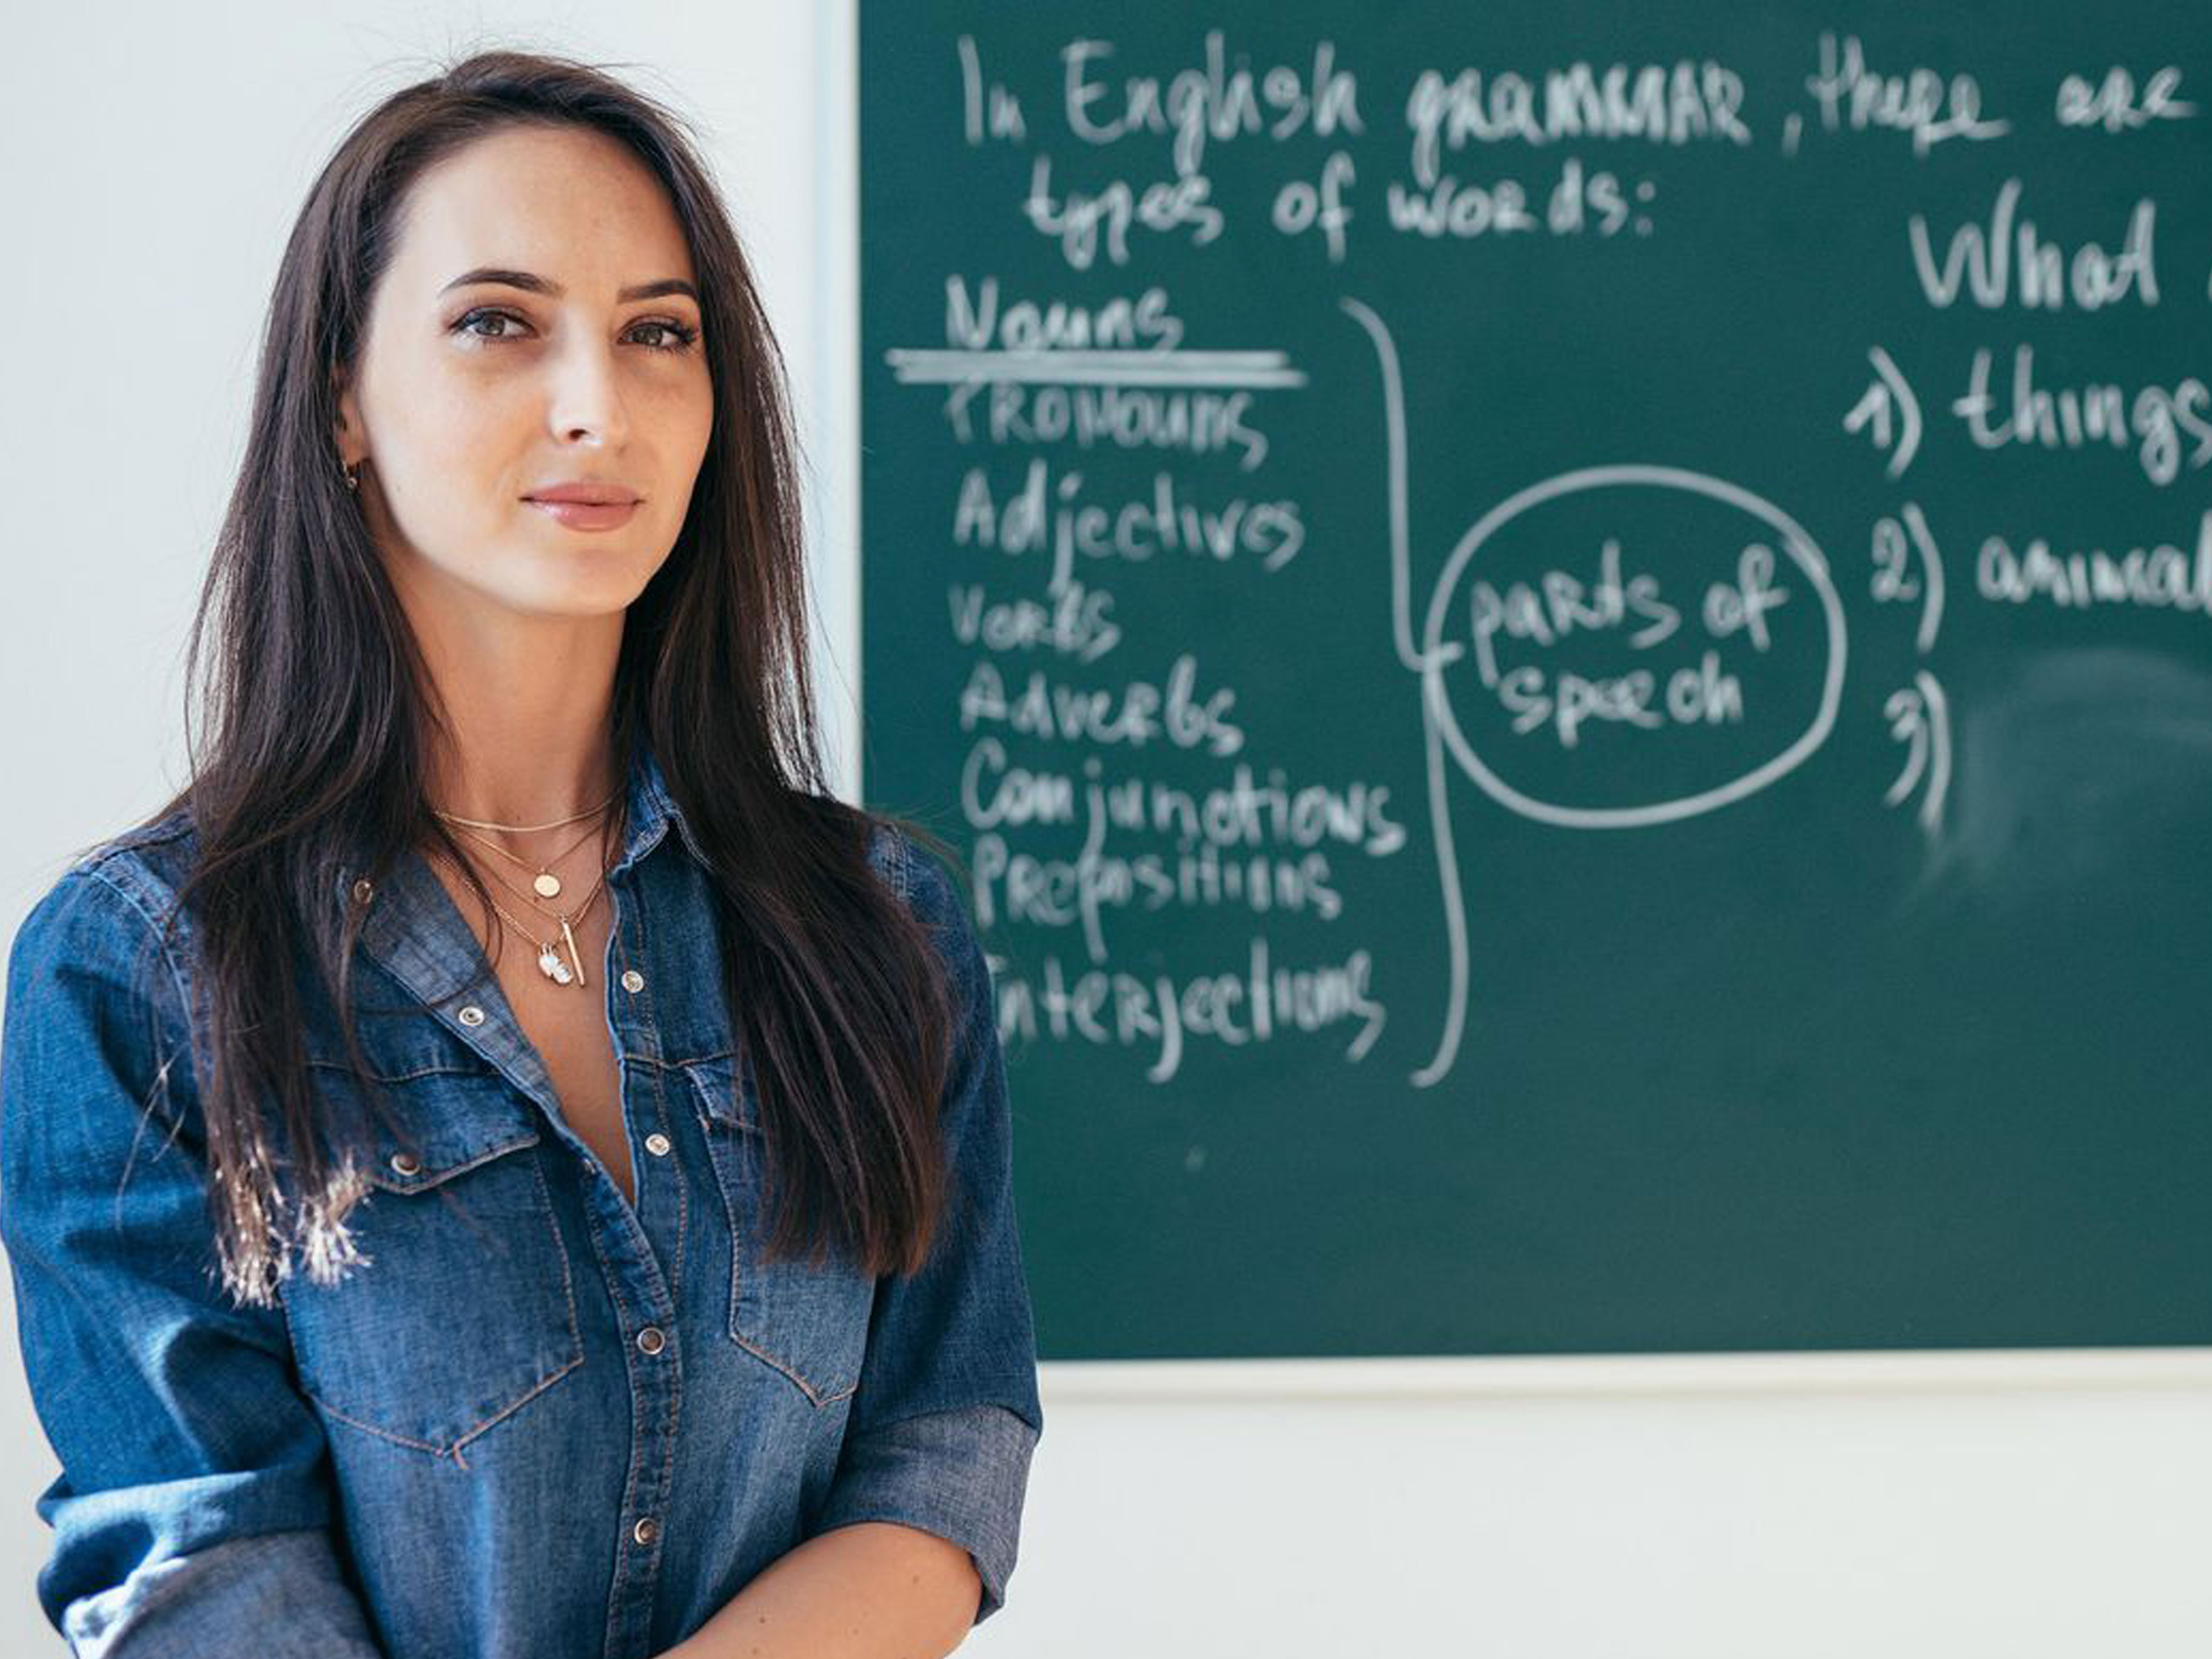 In English grammar, there are
types of words:
Nouns
Pronouns
Adjectives
Verbs
Adverbs
Conjunctions
Prepositions
Interjections
parts of
speech
What
1) things
2) animal
3)